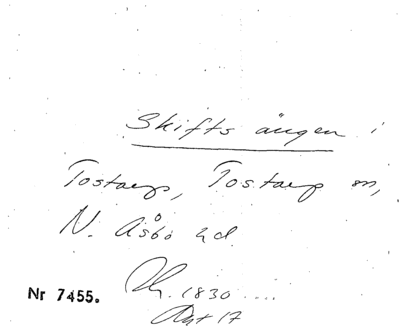 Skifts ängen i
Tostarp, Tostarp sn,
N. Åsbo hd.
1830 ....
Nr 7455.
17